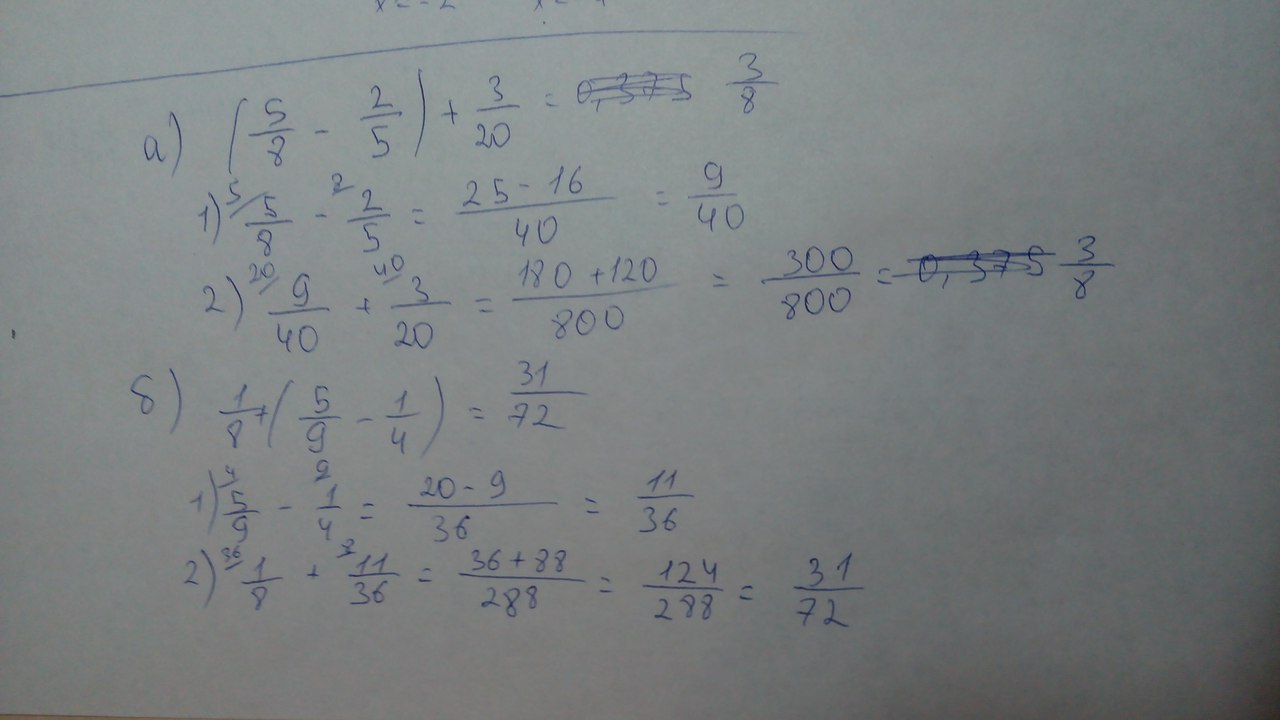 а) (5/8 - 2/5) + 3/20 = 0,375 3/8
1) 5/ 5/8 - 8/ 2/5 = (25 - 16)/40 = 9/40
2) 20/ 9/40 + 40/ 3/20 = (180 + 120)/800 = 300/800 = 0,375 3/8
б) 1/8 + (5/9 - 1/4) = 31/72
1) 4/ 5/9 - 9/ 1/4 = (20 - 9)/36 = 11/36
2) 36/ 1/8 + 8/ 11/36 = (36 + 88)/288 = 124/288 = 31/72